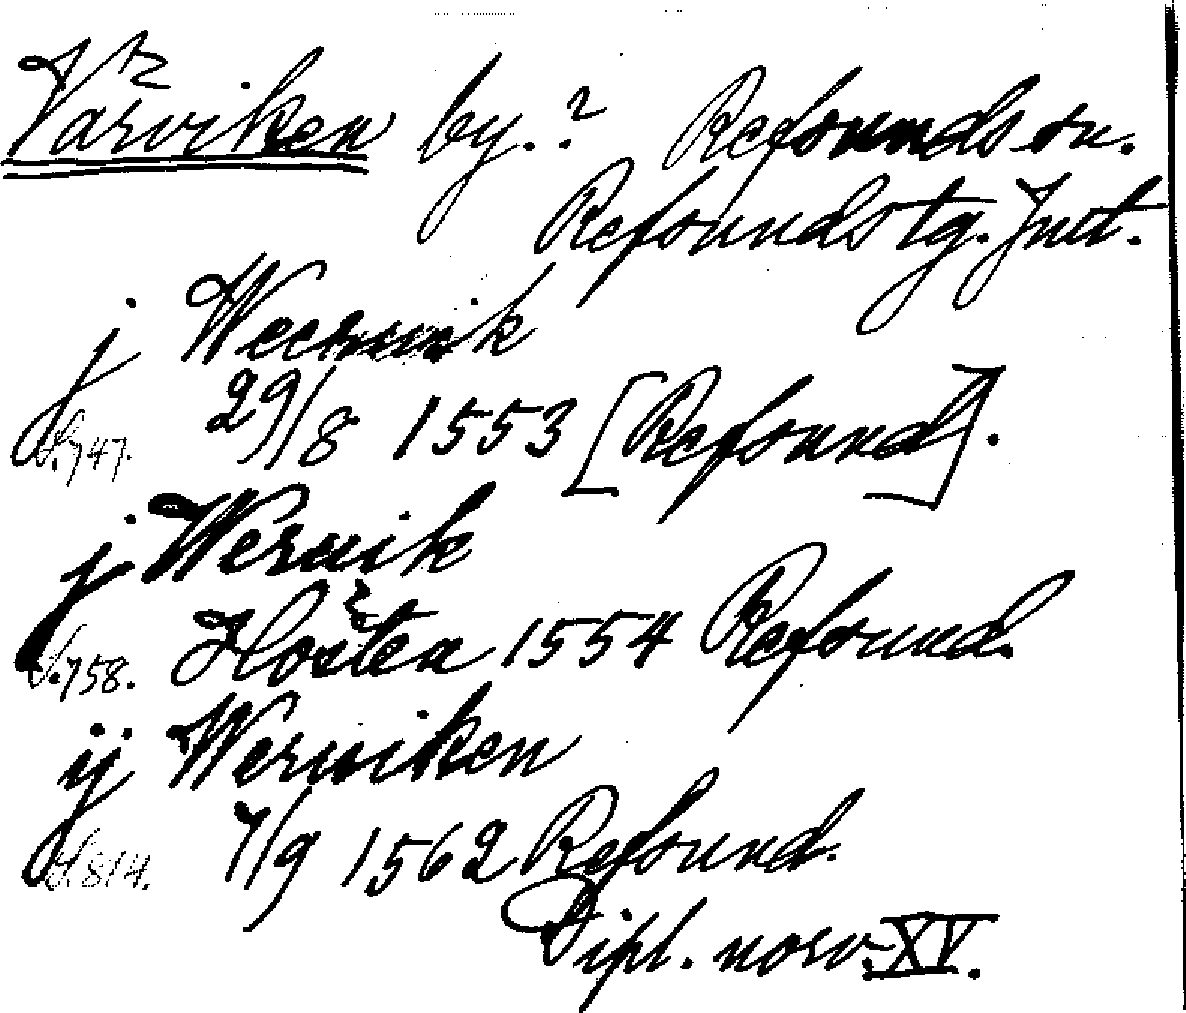 Värviken by.? Refsunds sn.
Refsunds tg. Jmt.
j Weeruik
29/8 1553 [Refsund].
S. 747.
j Weruik
S. 758. Hösten 1554 Refsund.
ij Weruiken
S. 814. 7/9 1562 Refsund.
Dipl. norv. XV.